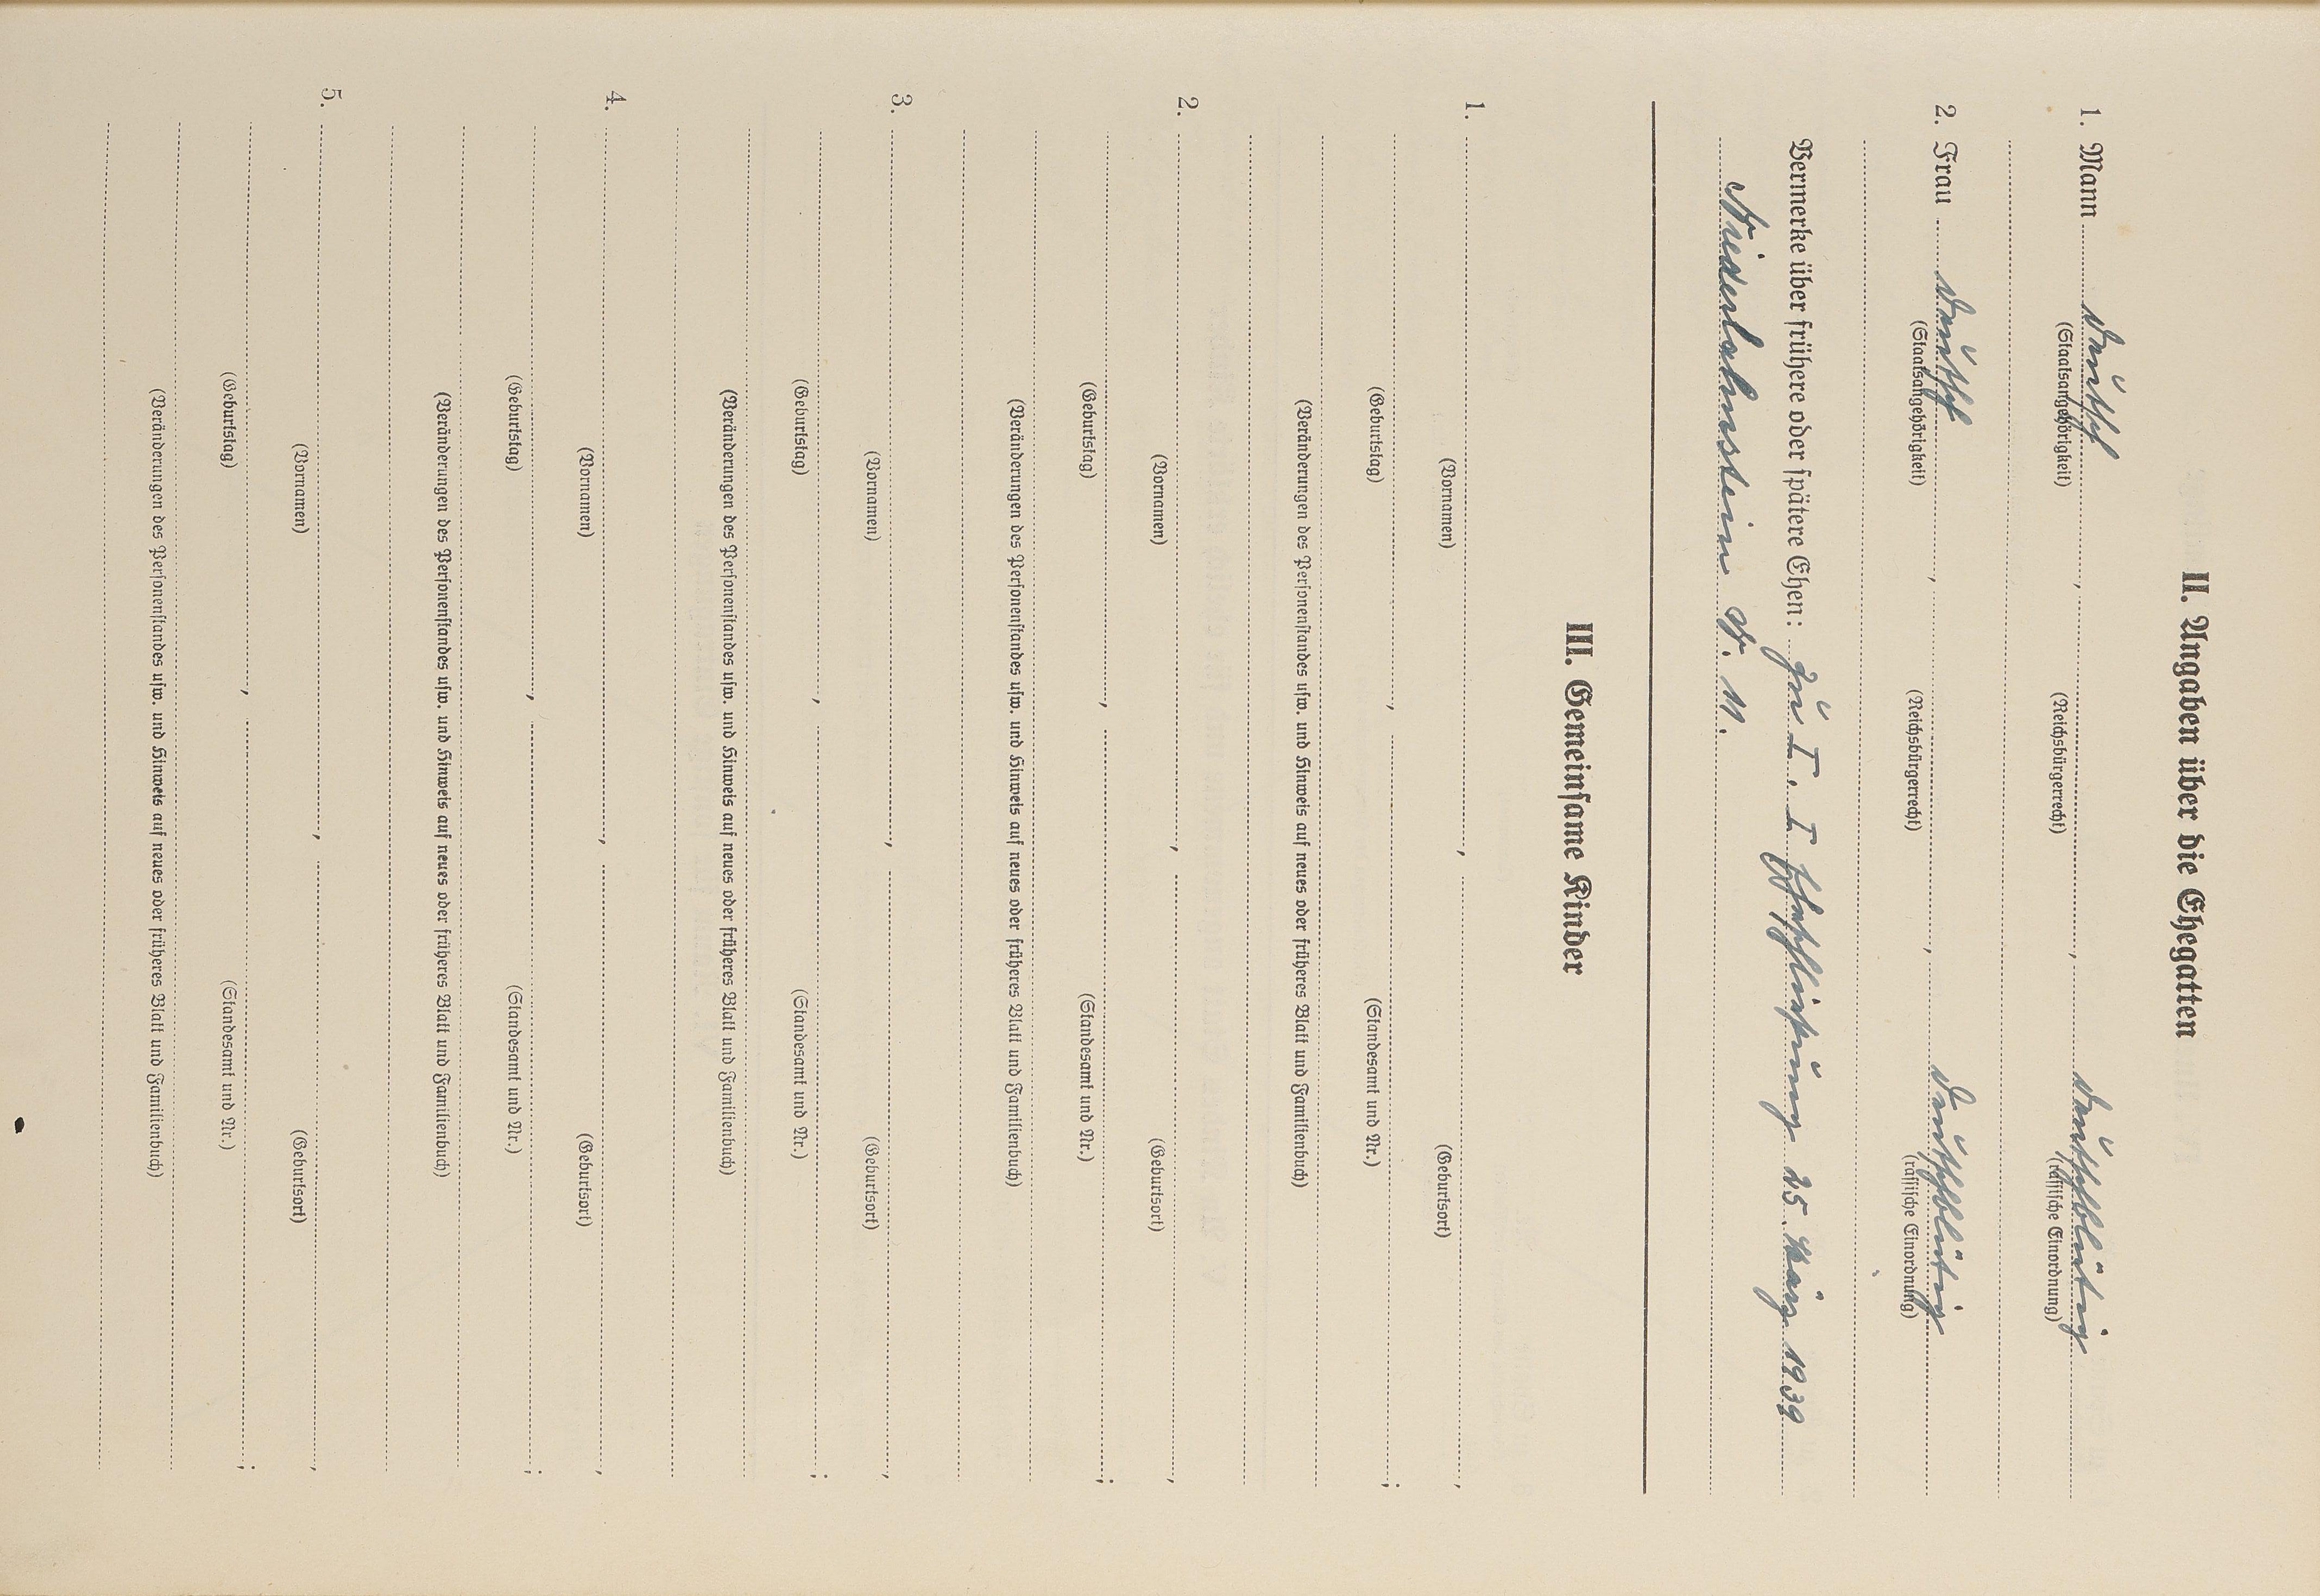 II. Angaben über die Ehegatten
1. Mann deutsch , , deutschblütig
(Staatsangehörigkeit) (Reichsbürgerrecht) (rassische Einordnung)
2. Frau deutsch , , deutschblütig
(Staatsangehörigkeit) (Reichsbürgerrecht) (rassische Einordnung)
Vermerke über frühere oder spätere Ehen: zu I. I Eheschließung 25. März 1939
Niederlahnstein Nr. 11.
III. Gemeinsame Kinder
1. , ,
(Vornamen) (Geburtsort)
, ;
(Geburtstag) (Standesamt und Nr.)
(Veränderungen des Personenstandes usw. und Hinweis auf neues oder früheres Blatt und Familienbuch)
2. , ,
(Vornamen) (Geburtsort)
, ;
(Geburtstag) (Standesamt und Nr.)
(Veränderungen des Personenstandes usw. und Hinweis auf neues oder früheres Blatt und Familienbuch)
3. , ,
(Vornamen) (Geburtsort)
, ;
(Geburtstag) (Standesamt und Nr.)
(Veränderungen des Personenstandes usw. und Hinweis auf neues oder früheres Blatt und Familienbuch)
4. , ,
(Vornamen) (Geburtsort)
, ;
(Geburtstag) (Standesamt und Nr.)
(Veränderungen des Personenstandes usw. und Hinweis auf neues oder früheres Blatt und Familienbuch)
5. , ,
(Vornamen) (Geburtsort)
, ;
(Geburtstag) (Standesamt und Nr.)
(Veränderungen des Personenstandes usw. und Hinweis auf neues oder früheres Blatt und Familienbuch)